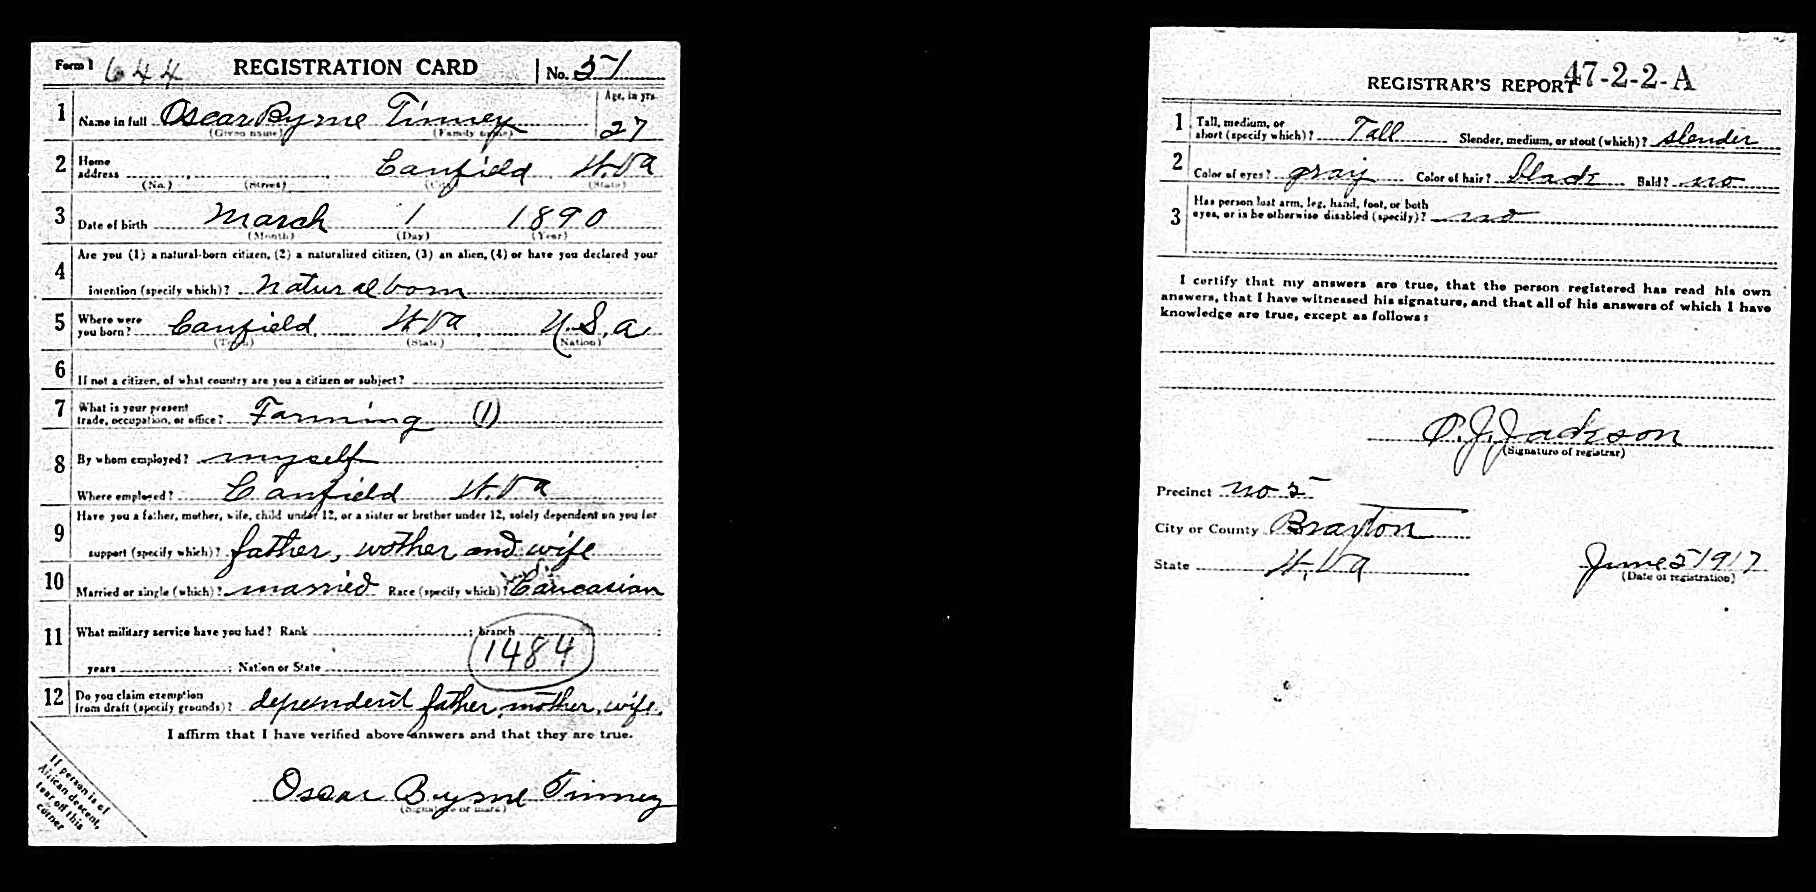 Form 1 644 REGISTRATION CARD No. 51
1 Name in full Oscar Byrne Tinney Age, in yrs.
(Given name) (Family name) 27
2 Home address Canfield W.Va
(No.) (Street) (City) (State)
3 Date of birth March 1 1890
(Month) (Day) (Year)
4 Are you (1) a natural-born citizen, (2) a naturalized citizen, (3) an alien, (4) or have you declared your
intention (specify which)? Natural born
5 Where were you born? Canfield W.Va. U.S.a
(Town) (State) (Nation)
6 If not a citizen, of what country are you a citizen or subject?
7 What is your present
trade, occupation, or office? Farming (1)
8 By whom employed? myself
Where employed? Canfield W.Va
9 Have you a father, mother, wife, child under 12, or a sister or brother under 12, solely dependent on you for
support (specify which)? father, mother and wife
10 Married or single (which)? married Race (specify which)? Caucasian
11 What military service have you had? Rank ; branch ;
years ; Nation or State 1484
12 Do you claim exemption
from draft (specify grounds)? dependent father, mother, wife.
I affirm that I have verified above answers and that they are true.
Oscar Byrne Tinney
(Signature or mark)
If person is of
African descent,
tear off this
corner
REGISTRAR'S REPORT 47-2-2-A
1 Tall, medium, or
short (specify which)? Tall Slender, medium, or stout (which)? slender
2 Color of eyes? gray Color of hair? black Bald? no
3 Has person lost arm, leg, hand, foot, or both
eyes, or is he otherwise disabled (specify)? no
I certify that my answers are true, that the person registered has read his own
answers, that I have witnessed his signature, and that all of his answers of which I have
knowledge are true, except as follows:
O.J. Jackson
(Signature of registrar)
Precinct no 5
City or County Braxton
State W.Va June 5 1917
(Date of registration)